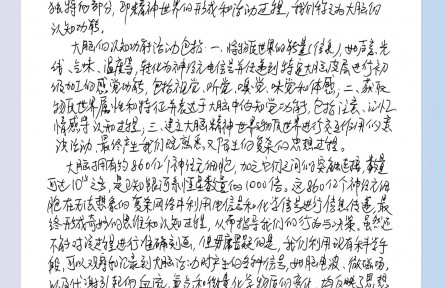 独特的部分，即精神世界的形成和活动过程，我们称之为大脑的
认知功能。
大脑的认知功能活动包括：一、将物质世界的能量（信息），如声、光
线、气味、温度等，转化为神经电信号并传递到特定大脑皮层进行初
级加工的感觉功能，包括视觉、听觉、嗅觉、味觉和体感；二、获取
物质世界属性和特征并表达于大脑中的知觉功能，包括注意、记忆
情感等认知过程；三、建立大脑精神世界与物质世界进行交互作用的意
识活动，最终产生我们既熟悉又陌生的复杂的思想过程。
大脑拥有约860亿个神经元细胞，加之它们之间的突触连接，数量
可达10¹⁴之高，是已知银河系恒星数量的1000倍。这860亿个神经元细
胞在无法想象的复杂网络中利用电信号和化学信号进行信息传递，最
终形成奇妙的思维和认知过程，从而指导我们的行为与决策。虽然还
不能对该过程进行准确刻画，但毋庸置疑的是，我们利用现有科学手
段，可以观察和记录到大脑活动时产生的各种信号，如脑电波、微磁场，
以及代谢引起的血流、氧含和微量化学物质的变化，均反映了思想